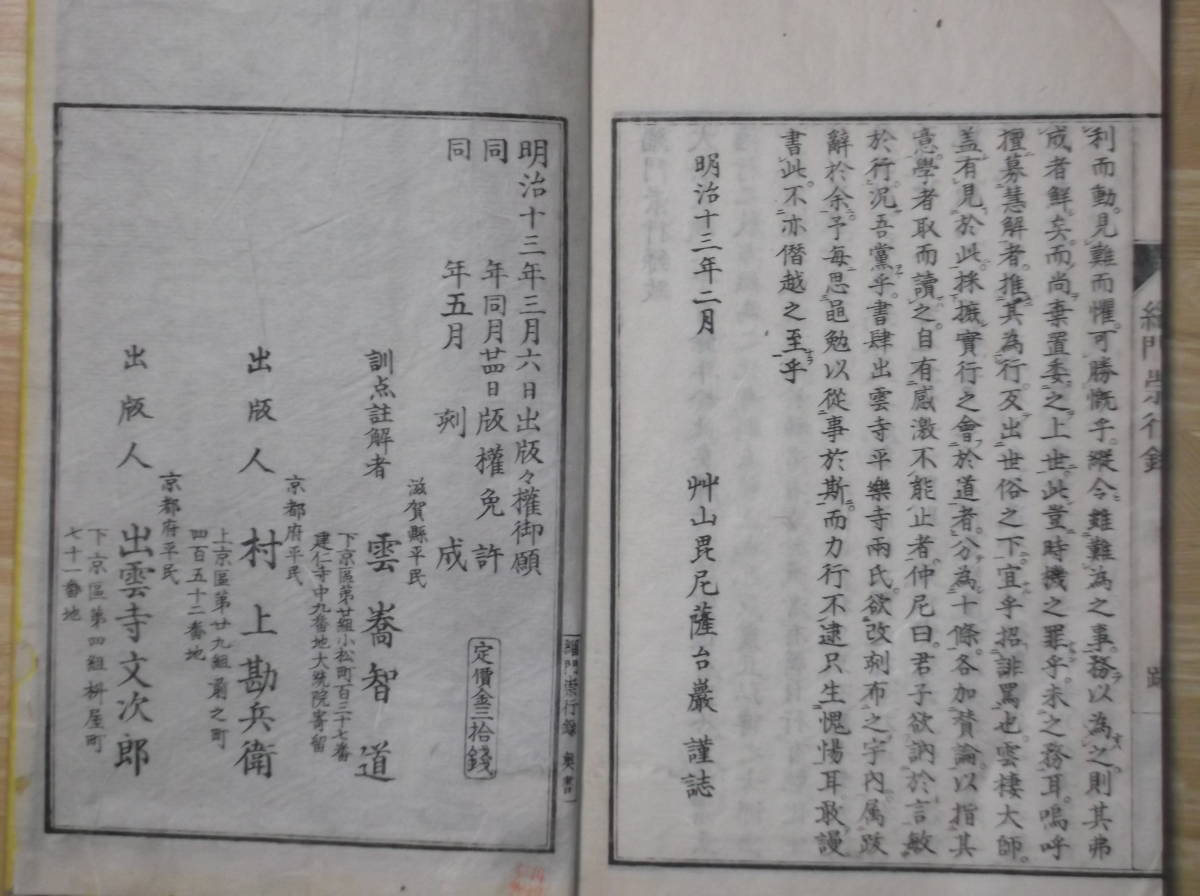 利而動。見難而懼。可勝慨乎。縱令難難為之事。務以為之。則其弗
成者鮮矣。而尚棄置委之上世。此豈時機之罪乎。未之務耳。嗚呼
擅募慧解者。推其為行。反出世俗之下。宜乎招誹罵也。雲棲大師。
盖有見於此。採摭實行之會於道者。分為十條。各加賛論。以指其
意。學者取而讀之。自有感激不能止者。仲尼曰。君子欲訥於言敏
於行。况吾黨乎。書肆出雲寺平樂寺兩氏。欲改刻布之宇内。属跋
辭於余。予毎思黽勉以從事於斯。而力行不逮。只生愧惕耳。敢謾
書此。不亦僭越之至乎
明治十三年二月
艸山毘尼薩台巖謹誌
緇門崇行錄
跋
明治十三年三月六日出版々權御願
同年同月廿四日版權免許
同年五月刻成
定價金三拾錢
訓点註解者
滋賀縣平民
雲崙智道
下京區第廿組小松町百三十七番
建仁寺中九番地大統院寄留
出版人
京都府平民
村上勘兵衛
上京區第廿九組扇之町
四百五十二番地
出版人
京都府平民
出雲寺文次郎
下京區第四組枡屋町
七十一番地
緇門崇行錄
奥書